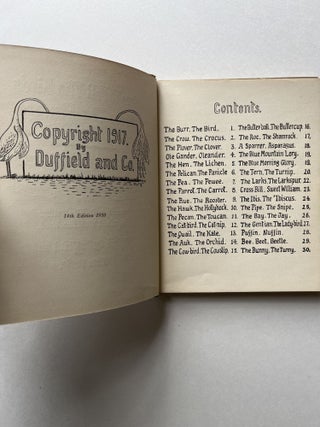 Copyright 1917.
By
Duffield and Co.
18th Edition 1939
Contents.
The Burr. The Bird. 1.
The Crow. The Crocus. 2.
The Plover. The Clover. 3.
Ole Gander. Oleander. 4.
The Hen. The Lichen. 5.
The Pelican. The Panicle 6.
The Pea. The Pewee. 7.
The Parrot. The Carrot. 8.
The Rue. The Rooster. 9.
The Hawk. The Hollyhock. 10.
The Pecan. The Toucan. 11.
The Catbird. The Catnip. 12.
The Quail. The Kale. 13.
The Auk. The Orchid. 14.
The Cowbird. The Cowslip. 15.
The Butterball. The Buttercup. 16.
The Roc. The Shamrock.
A Sparrer. Asparagus. 18.
The Blue Mountain Lory. 19.
The Blue Morning Glory.
The Tern. The Turnip. 21.
The Larks. The Larkspur. 22.
Cross Bill. Sweet William. 23.
The Ibis. The 'Ibiscus. 24.
The Pipe. The Snipe.
The Jay. The Bay.
The Gentian. The Ladybird.
Puffin. Nuffin. 28.
Bee. Beet. Beetle. 29.
The Bunny. The Tunny. 30.